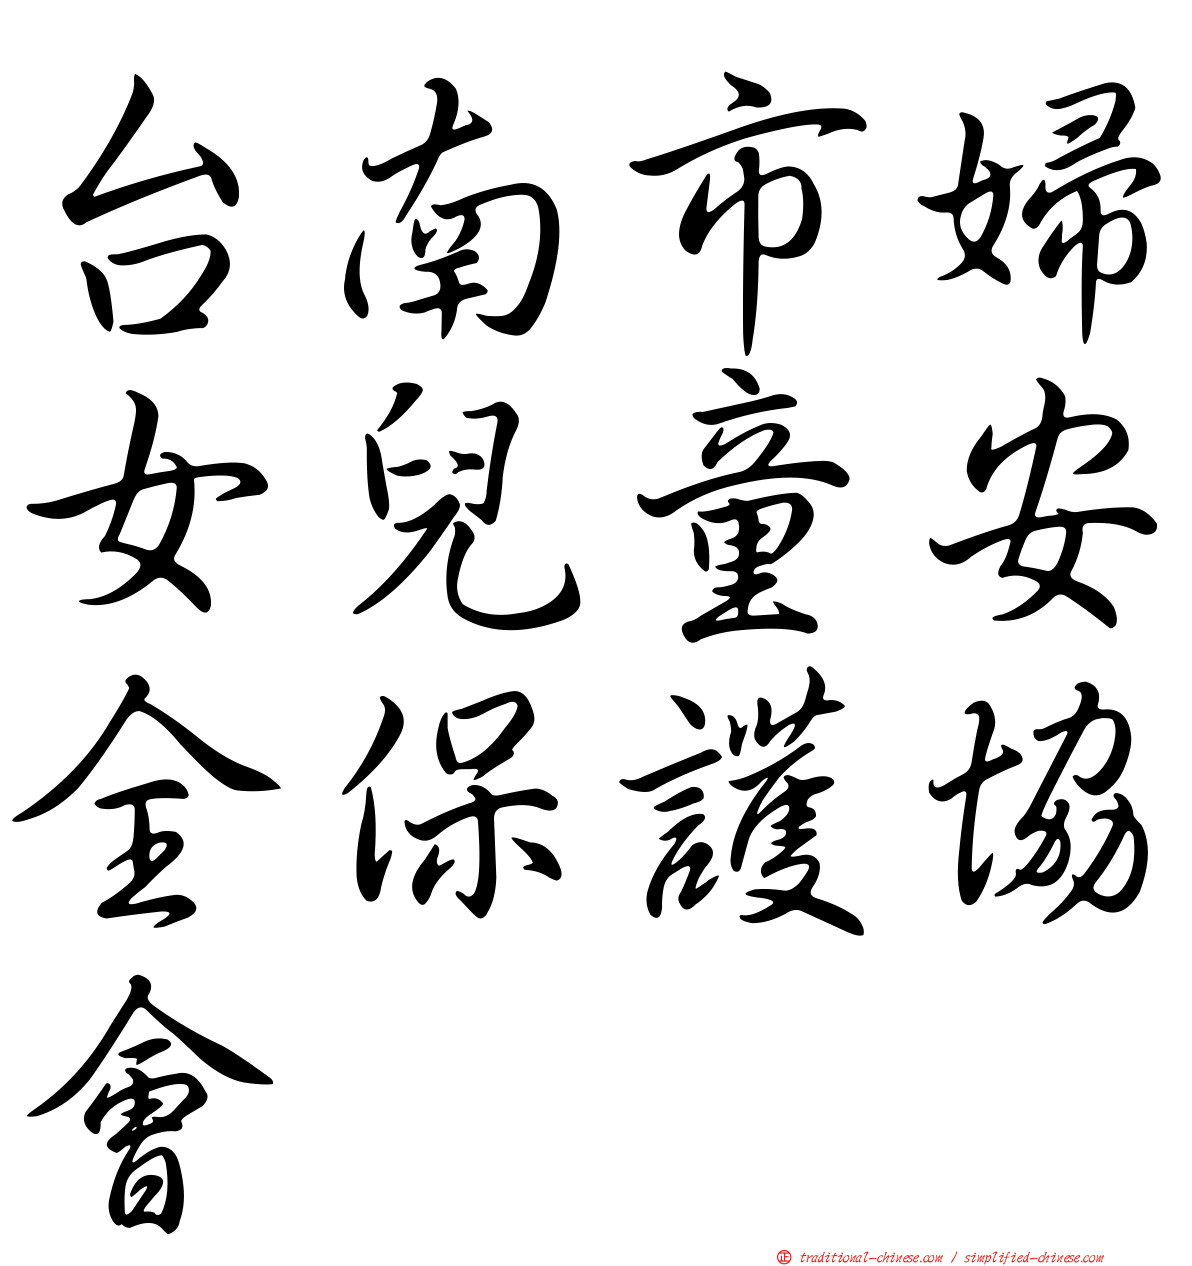 台南市婦
女兒童安
全保護協
會
正 traditional-chinese.com / simplified-chinese.com